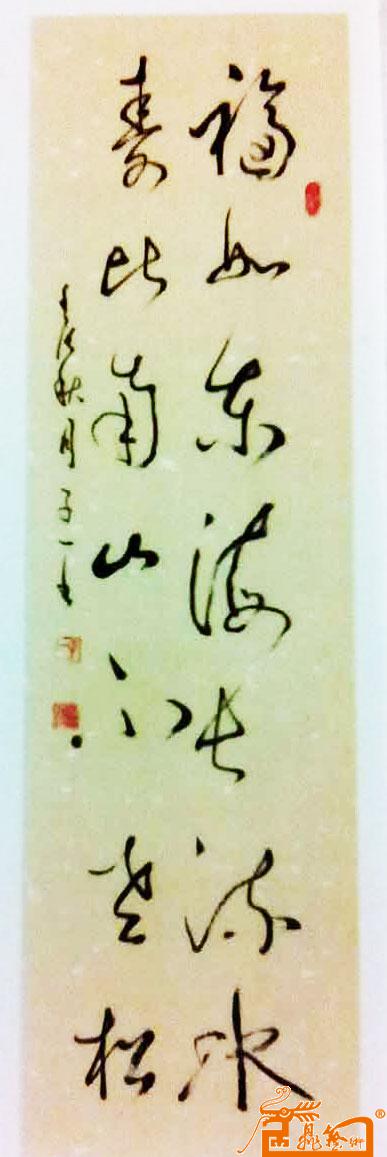 福如东海长流水
寿比南山不老松
秋月